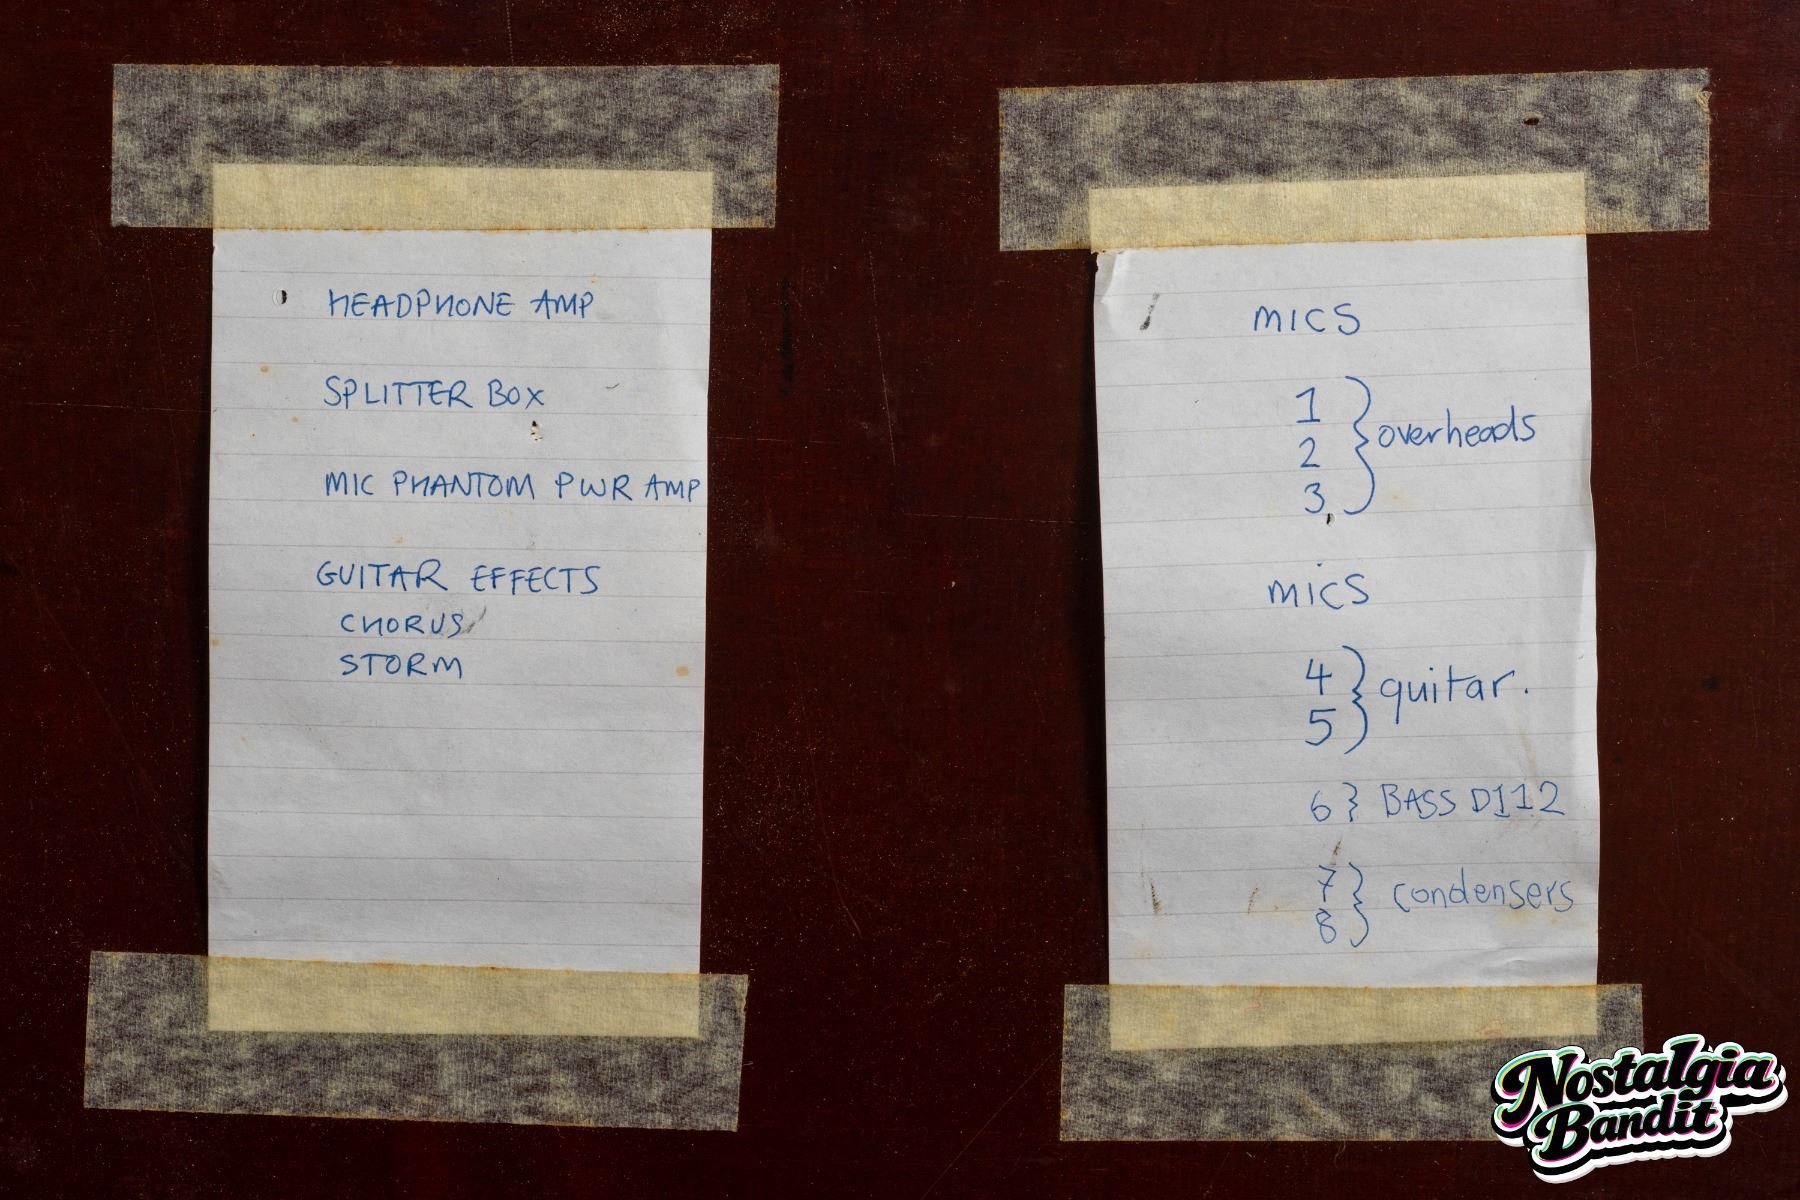 HEADPHONE AMP
SPLITTER BOX
MIC PHANTOM PWR AMP
GUITAR EFFECTS
CHORUS
STORM
MICS
1
2
3
overheads
MICS
4
5
guitar.
6 } BASS D112
7
8
condensers
Nostalgia
Bandit